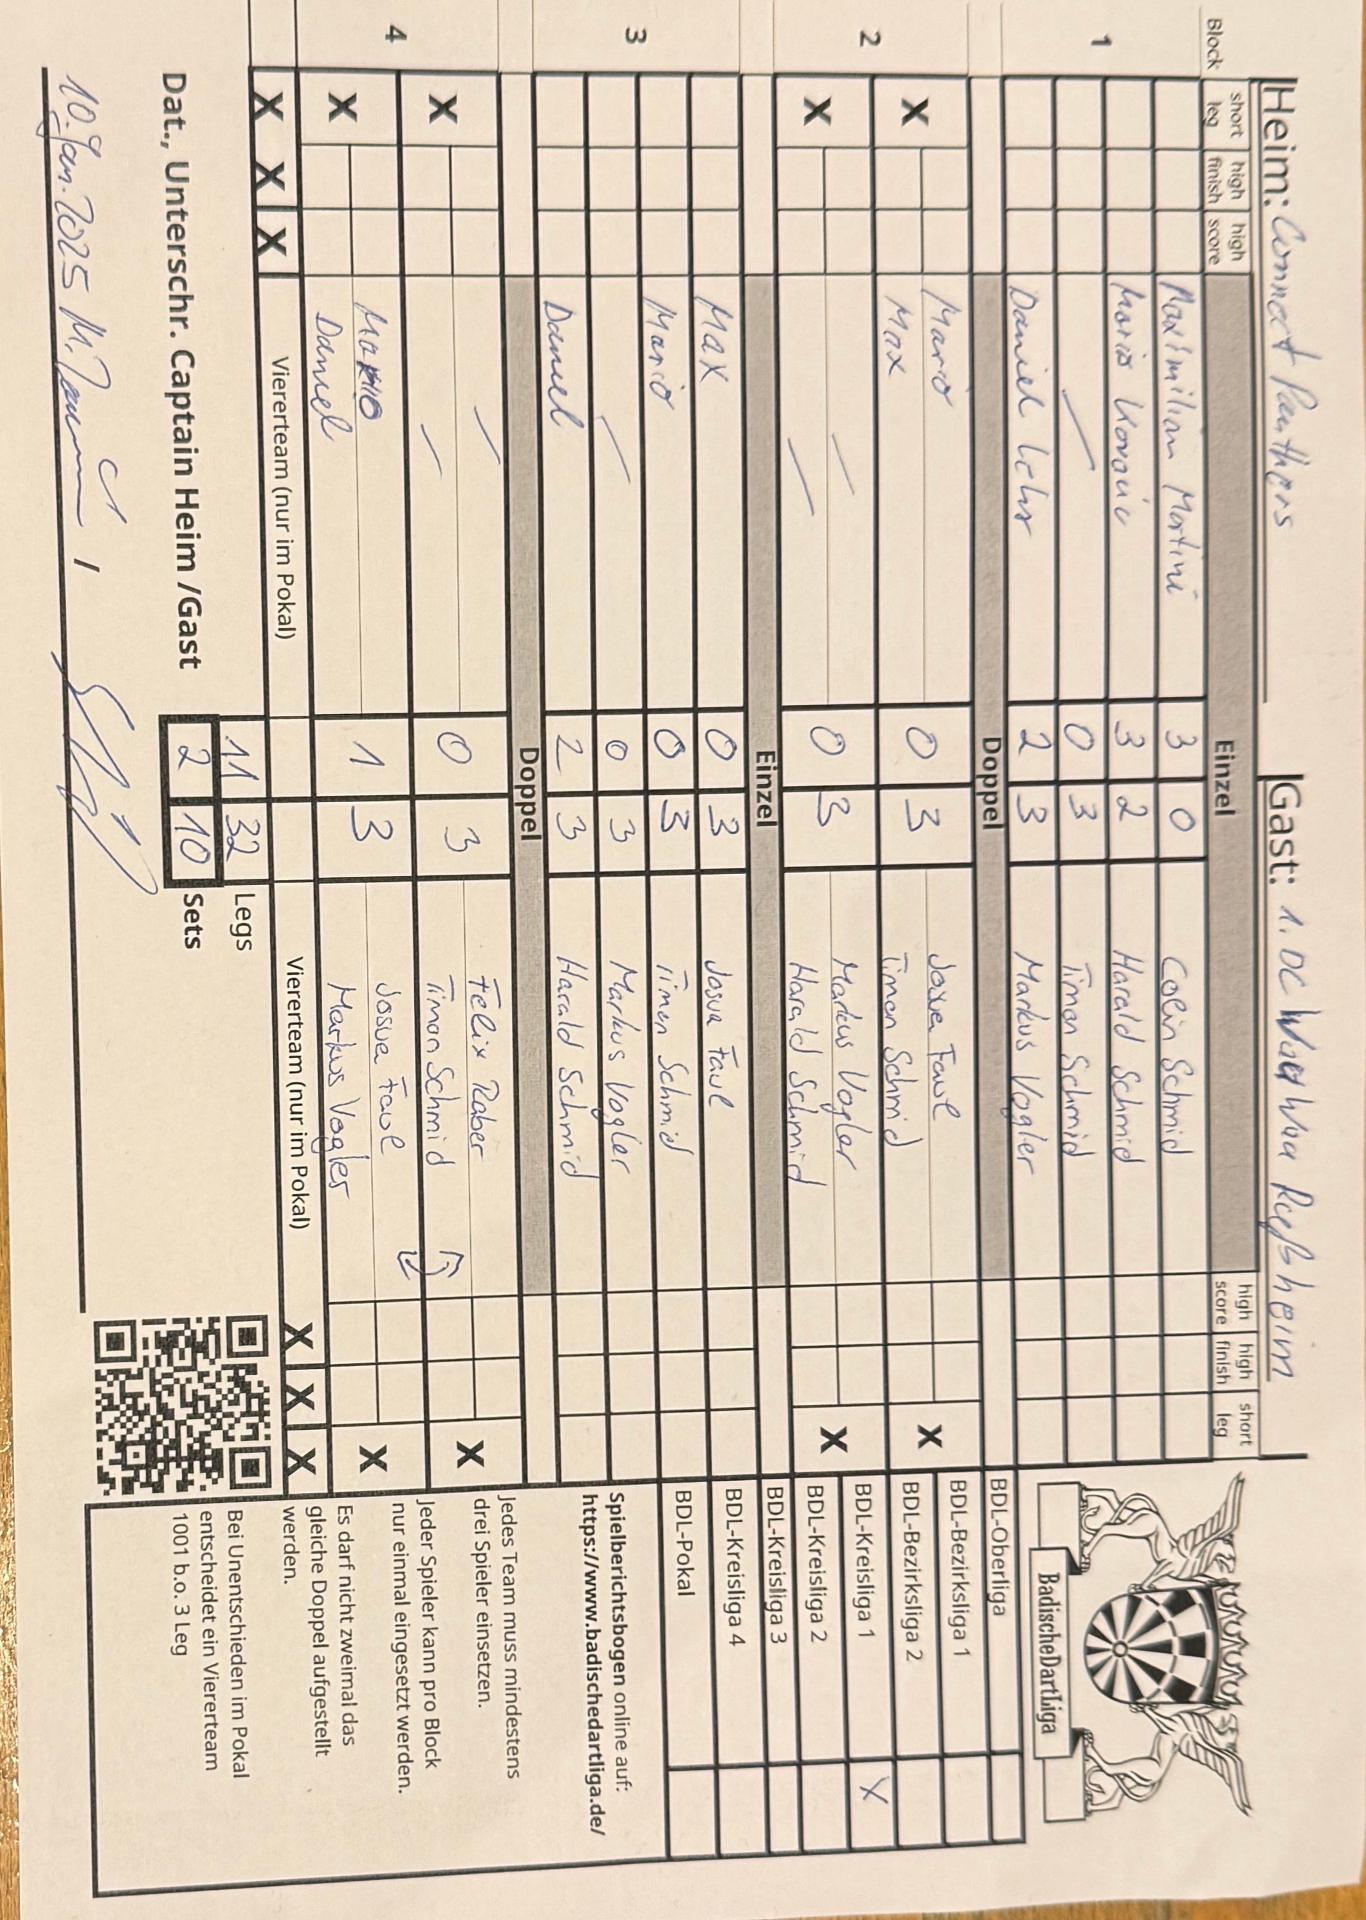 Heim: Connect Panthers Gast: 1. DC
Block short leg high finish high score Einzel high score high finish short leg
1
Maximilian Martini 3 0 Colin Schmid
Mario Kovacic 3 2 Harald Schmid
— 0 3 Timon Schmid
Daniel Lehr 2 3 Markus Vogler
Doppel
2
X Mario 0 3 Josua Faul X
Max Timon Schmid
X — 0 3 Markus Vogler X
— Harald Schmid
Einzel
3
Max 0 3 Josua Faul
Mario 0 3 Timon Schmid
— 0 3 Markus Vogler
Daniel 2 3 Harald Schmid
Doppel
4
X — 0 3 Felix Raber X
— Timon Schmid
X Mario 1 3 Josua Faul X
Daniel Markus Vogler
X X X Viererteam (nur im Pokal) Viererteam (nur im Pokal) X X X
11 32 Legs
Dat., Unterschr. Captain Heim /Gast 2 10 Sets
10. Jan. 2025 /
BadischeDartLiga
BDL-Oberliga
BDL-Bezirksliga 1
BDL-Bezirksliga 2
BDL-Kreisliga 1 X
BDL-Kreisliga 2
BDL-Kreisliga 3
BDL-Kreisliga 4
BDL-Pokal
Spielberichtsbogen online auf:
https://www.badischedartliga.de/
Jedes Team muss mindestens
drei Spieler einsetzen.
Jeder Spieler kann pro Block
nur einmal eingesetzt werden.
Es darf nicht zweimal das
gleiche Doppel aufgestellt
werden.
Bei Unentschieden im Pokal
entscheidet ein Viererteam
1001 b.o. 3 Leg